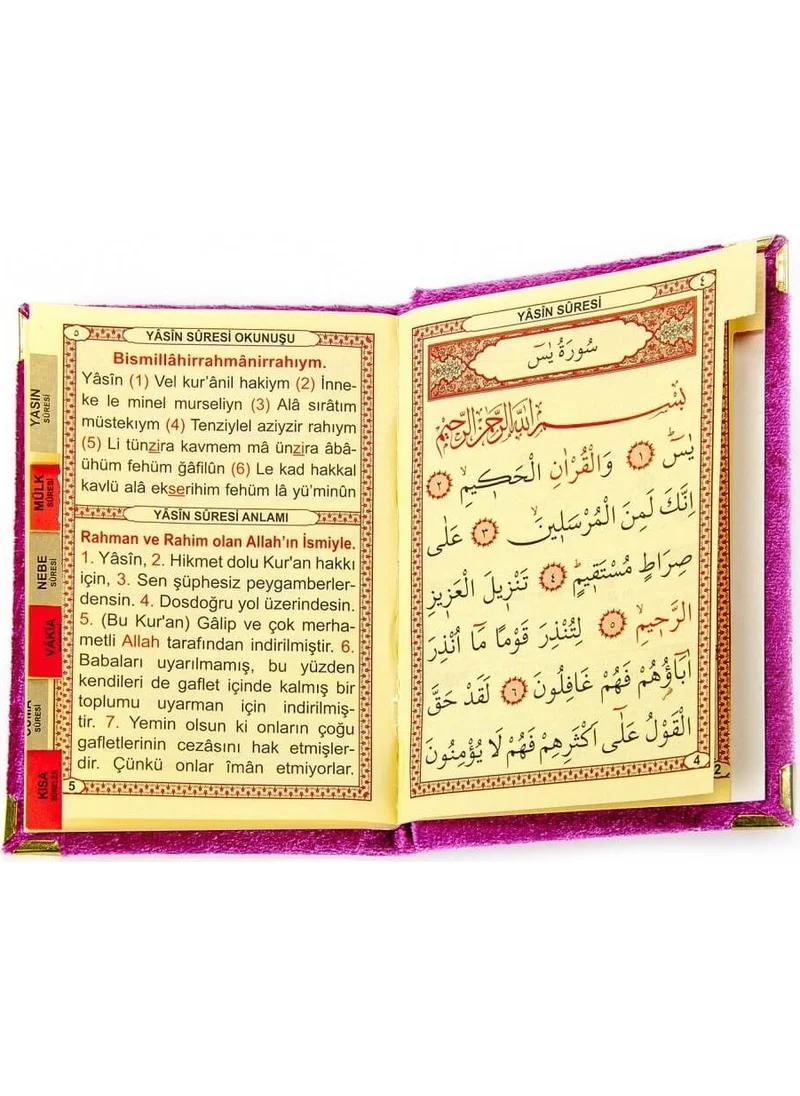 YASIN
SÛRESİ
MÜLK
SÛRESİ
NEBE
SÛRESİ
VÂKIA
SÛRESİ
KISA
٥
YÂSÎN SÛRESİ OKUNUŞU
Bismillâhirrahmânirrahıym.
Yâsîn (1) Vel kur'ânil hakiym (2) İnne-
ke le minel murseliyn (3) Alâ sırâtım
müstekıym (4) Tenziylel aziyzir rahıym
(5) Li tünzira kavmem mâ ünzira âbâ-
ühüm fehüm ğâfilûn (6) Le kad hakkal
kavlü alâ ekserihim fehüm lâ yü'minûn
YÂSÎN SÛRESİ ANLAMI
Rahman ve Rahim olan Allah'ın İsmiyle.
1. Yâsîn, 2. Hikmet dolu Kur'an hakkı
için, 3. Sen şüphesiz peygamberler-
densin. 4. Dosdoğru yol üzerindesin.
5. (Bu Kur'an) Gâlip ve çok merha-
metli Allah tarafından indirilmiştir. 6.
Babaları uyarılmamış, bu yüzden
kendileri de gaflet içinde kalmış bir
toplumu uyarman için indirilmiş-
tir. 7. Yemin olsun ki onların çoğu
gafletlerinin cezâsını hak etmişler-
dir. Çünkü onlar îmân etmiyorlar.
5
٤
YÂSÎN SÛRESİ
سُورَةُ يٰسٓ
بِسْمِ اللّٰهِ الرَّحْمٰنِ الرَّحِيمِ
يٰسٓ ۚ ١ وَالْقُرْاٰنِ الْحَكِيمِ ۙ ٢
اِنَّكَ لَمِنَ الْمُرْسَلِينَ ۙ ٣ عَلٰى
صِرَاطٍ مُسْتَقِيمٍ ۜ ٤ تَنْزِيلَ الْعَزِيزِ
الرَّحِيمِ ۙ ٥ لِتُنْذِرَ قَوْمًا مَٓا اُنْذِرَ
اٰبَٓاؤُهُمْ فَهُمْ غَافِلُونَ ٦ لَقَدْ حَقَّ
الْقَوْلُ عَلٰٓى اَكْثَرِهِمْ فَهُمْ لَا يُؤْمِنُونَ
4
2